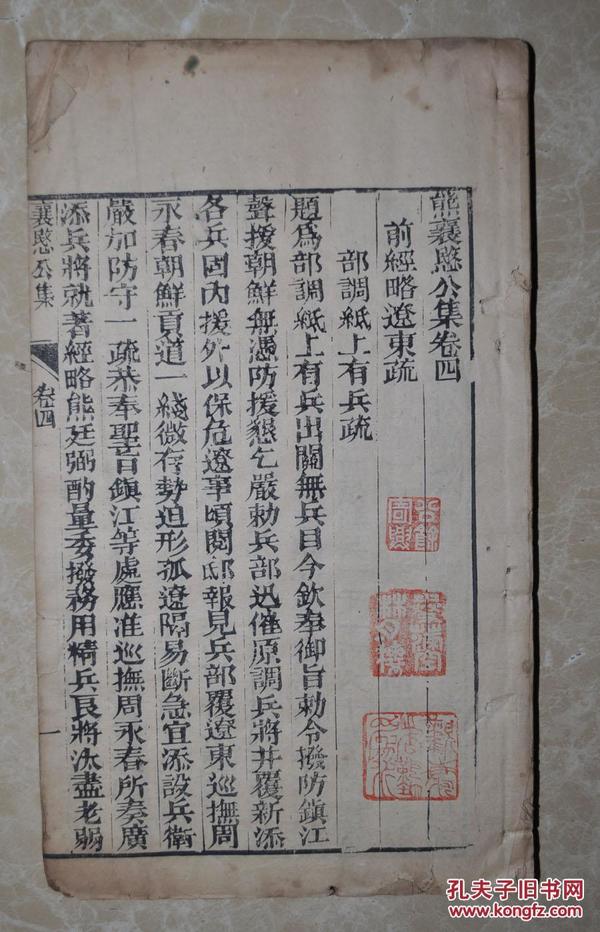 熊襄愍公集卷四
前經略遼東疏
部調紙上有兵疏
題爲部調紙上有兵出關無兵目今欽奉御旨勅令撥防鎮江
聲援朝鮮無憑防援懇乞嚴勅兵部迅催原調兵將并覆新添
各兵固內援外以保危遼事頃閱邸報見兵部覆遼東巡撫周
永春朝鮮貢道一綫微存勢迫形孤遼隔易斷急宜添設兵衛
嚴加防守一疏恭奉聖旨鎮江等處應准巡撫周永春所奏廣
添兵將就著經略熊廷弼酌量委撥務用精兵良將汰盡老弱
襄愍公集
卷四
一
孔夫子旧书网
www.kongfz.com